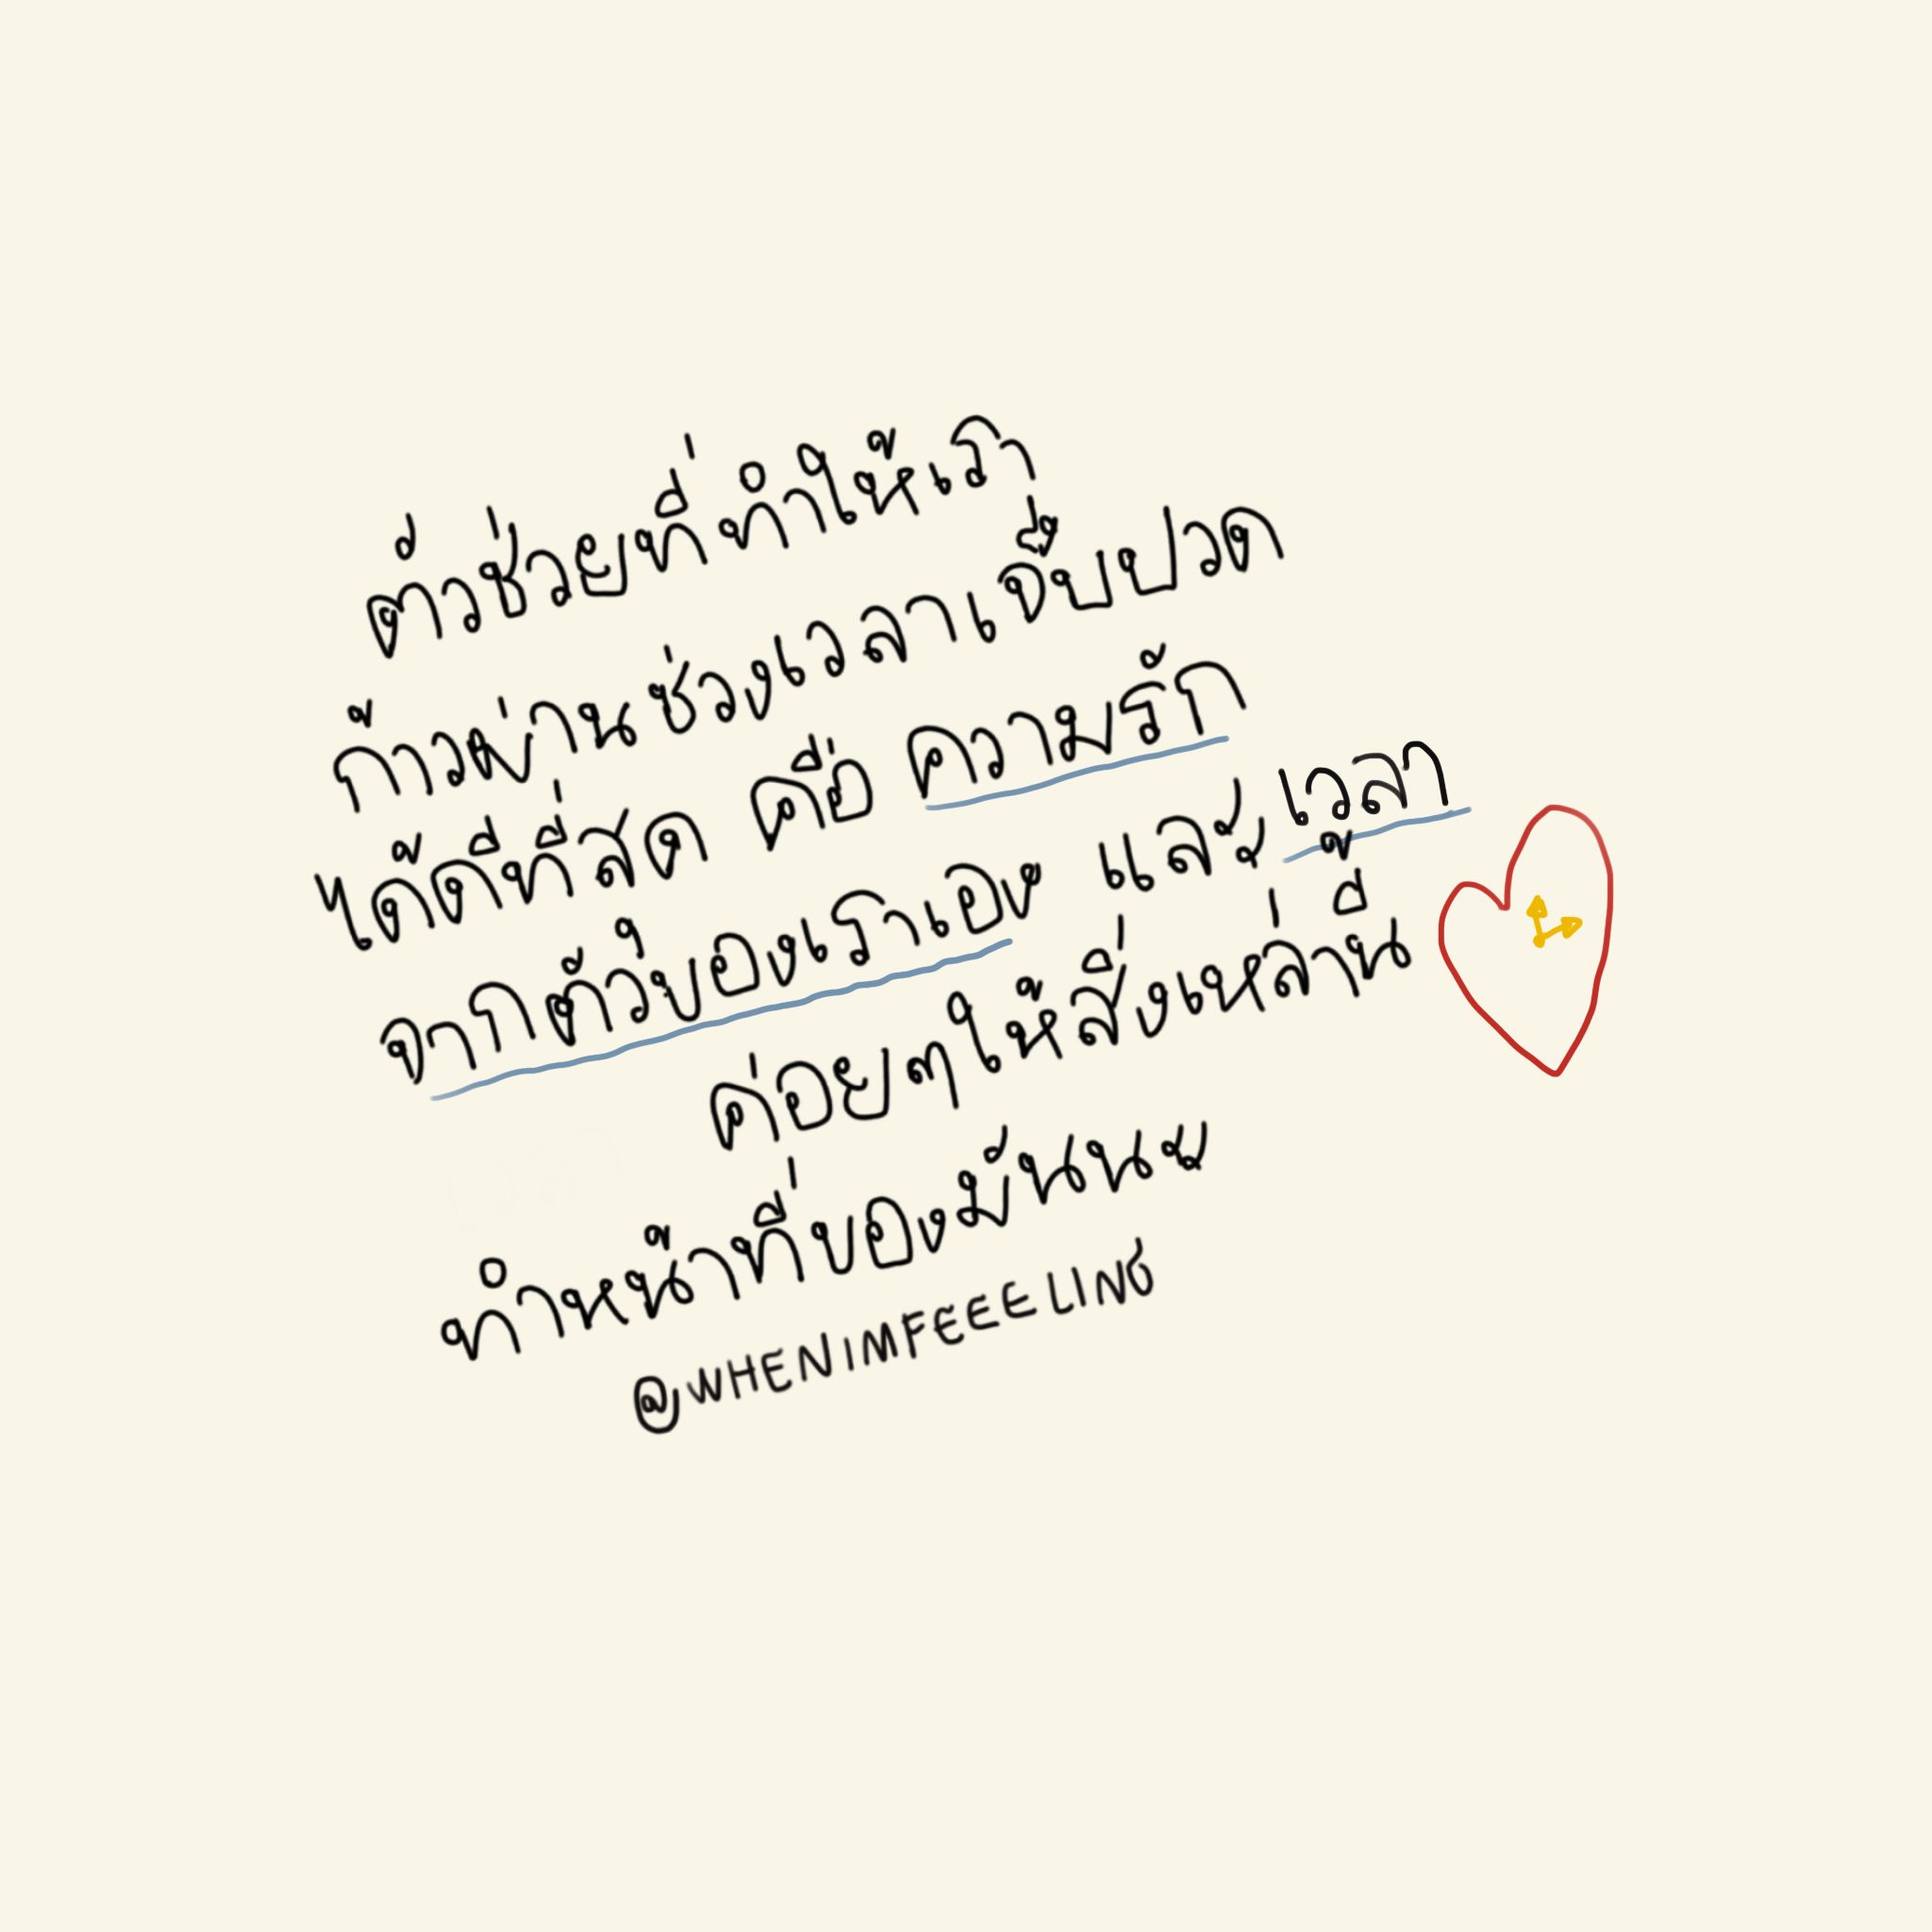 ตัวช่วยที่ทำให้เรา
ก้าวผ่านช่วงเวลาเจ็บปวด
ได้ดีที่สุด คือ ความรัก
จากตัวของเราเอง และ เวลา
ค่อยๆให้สิ่งเหล่านี้
ทำหน้าที่ของมันนะ
@WHENIMFEEELING